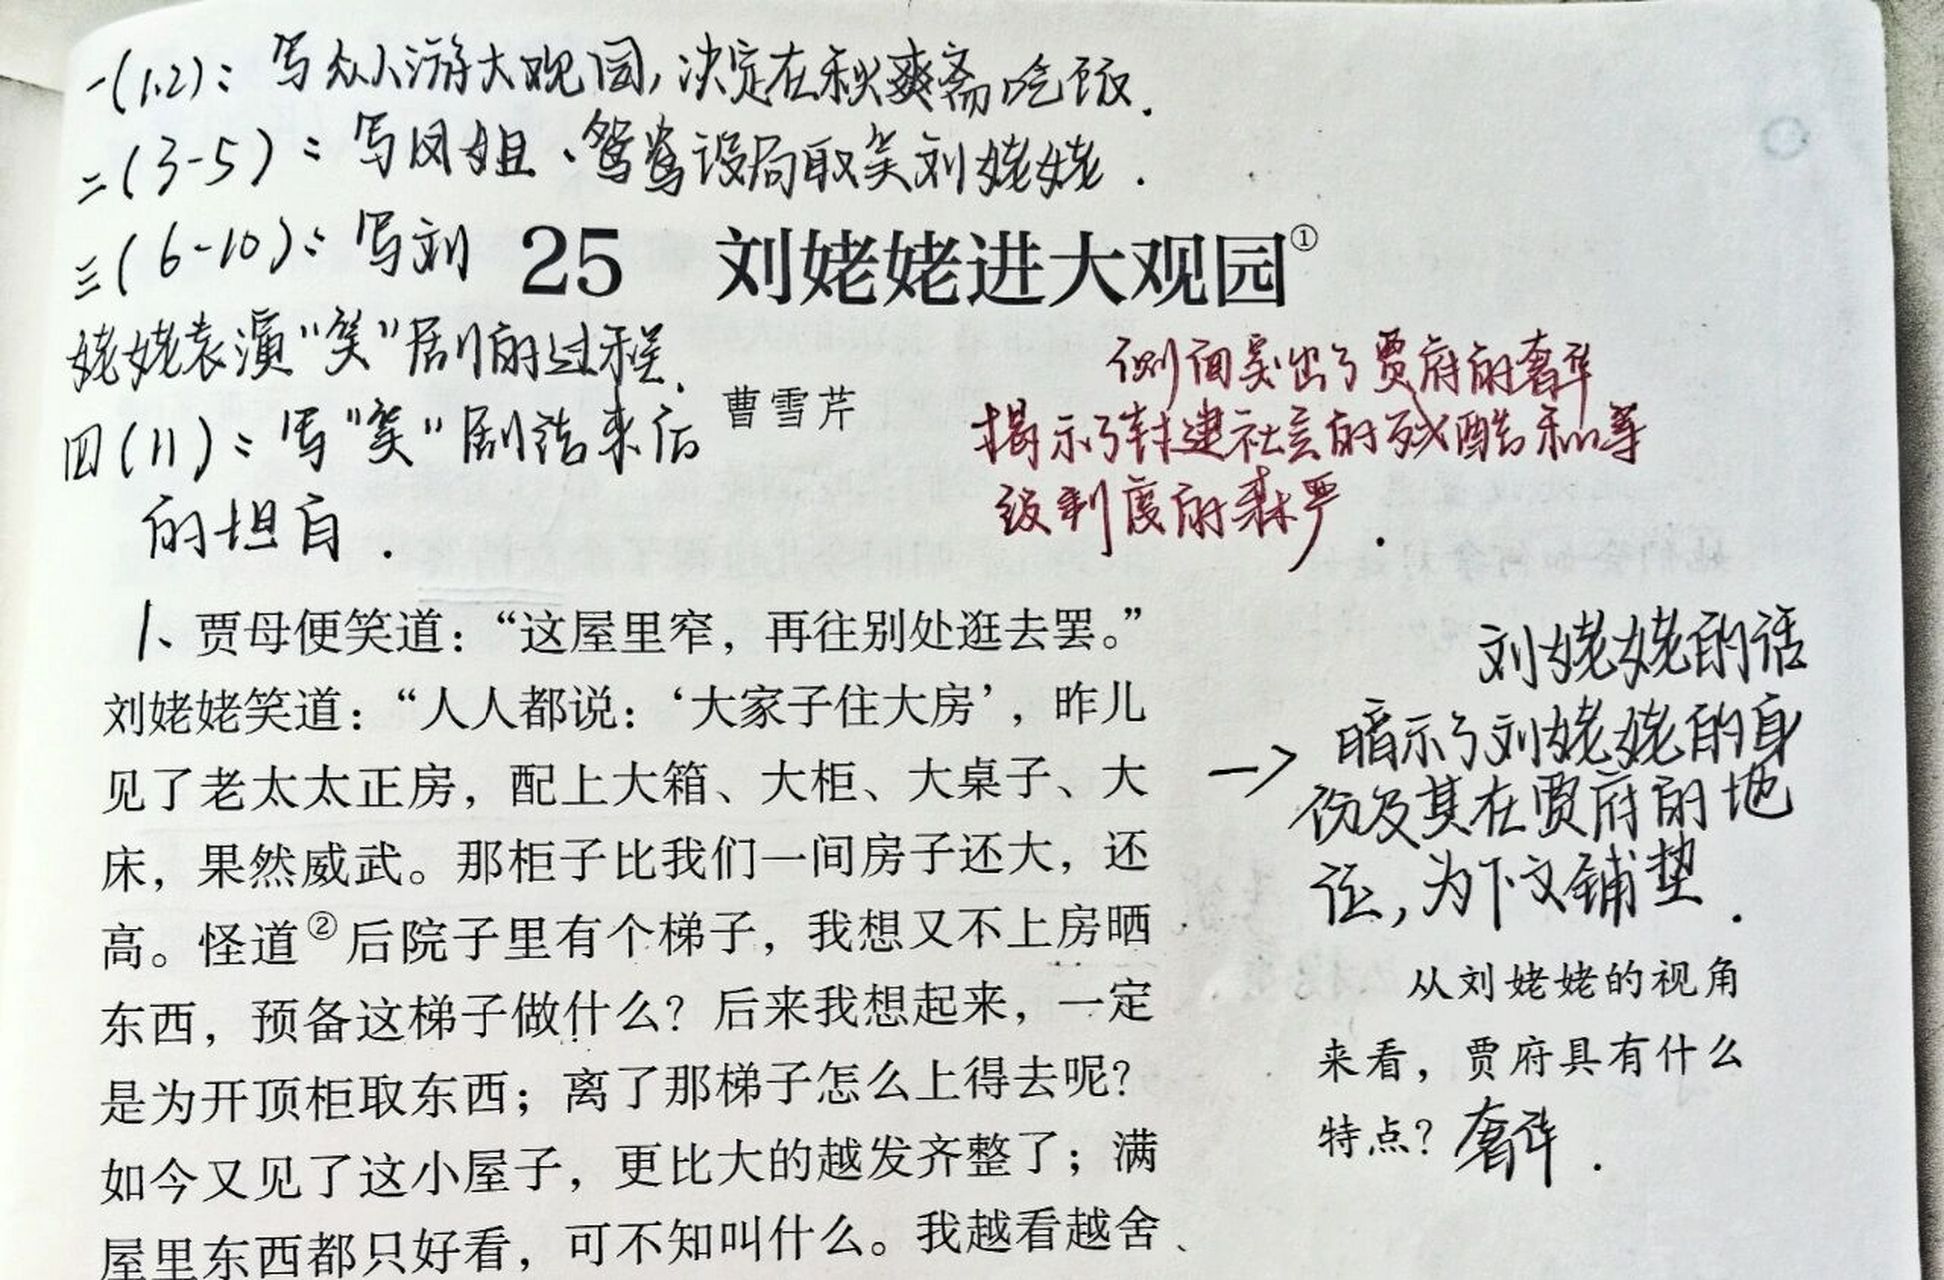 一(1.2)：写众人游大观园，决定在秋爽斋吃饭.
二(3-5)：写凤姐、鸳鸯设局取笑刘姥姥.
三(6-10)：写刘
25 刘姥姥进大观园①
姥姥表演“笑”剧的过程.
四(11)：写“笑”剧结束后
的坦白.
曹雪芹
侧面突出了贾府的奢华
揭示了封建社会的残酷和等
级制度的森严.
1、贾母便笑道：“这屋里窄，再往别处逛去罢。”
刘姥姥笑道：“人人都说：‘大家子住大房’，昨儿
见了老太太正房，配上大箱、大柜、大桌子、大
床，果然威武。那柜子比我们一间房子还大，还
高。怪道②后院子里有个梯子，我想又不上房晒
东西，预备这梯子做什么？后来我想起来，一定
是为开顶柜取东西；离了那梯子怎么上得去呢？
如今又见了这小屋子，更比大的越发齐整了；满
屋里东西都只好看，可不知叫什么。我越看越舍
刘姥姥的话
→ 暗示了刘姥姥的身
份及其在贾府的地
位，为下文铺垫.
从刘姥姥的视角
来看，贾府具有什么
特点？奢华.